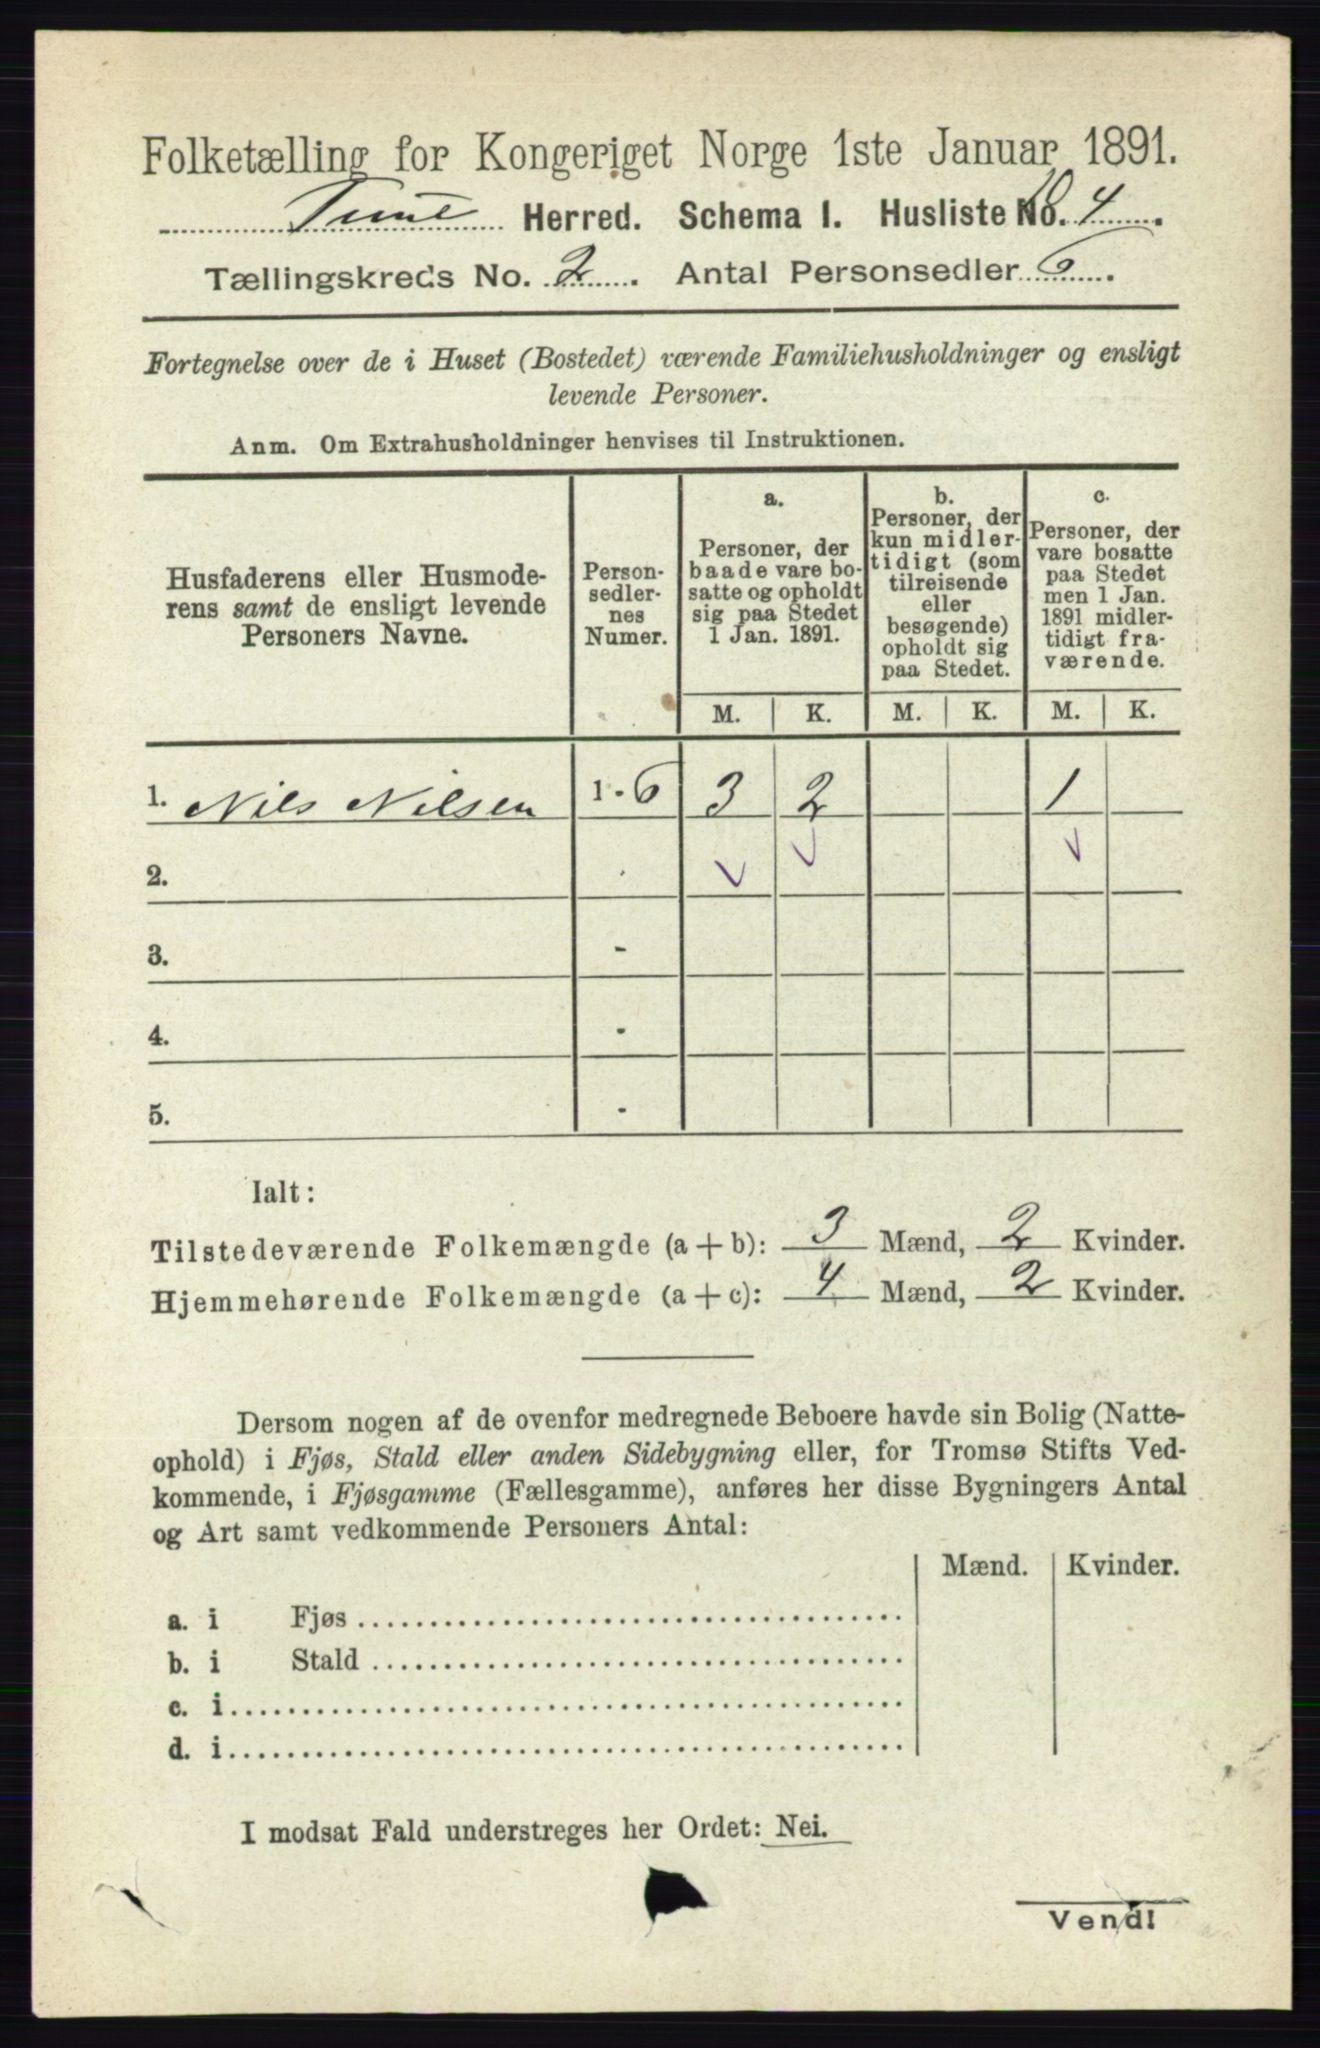 Folketælling for Kongeriget Norge 1ste Januar 1891.
Tune Herred. Schema I. Husliste No. 4.
Tællingskreds No. 2. Antal Personsedler 6.
Fortegnelse over de i Huset (Bostedet) værende Familiehusholdninger og ensligt
levende Personer.
Anm. Om Extrahusholdninger henvises til Instruktionen.
Husfaderens eller Husmode-
rens samt de ensligt levende
Personers Navne.
Person-
sedler-
nes
Numer.
a.
Personer, der
baade vare bo-
satte og opholdt
sig paa Stedet
1 Jan. 1891.
b.
Personer, der
kun midler-
tidigt (som
tilreisende
eller
besøgende)
opholdt sig
paa Stedet.
c.
Personer, der
vare bosatte
paa Stedet
men 1 Jan.
1891 midler-
tidigt fra-
værende.
M. K. M. K. M. K.
1. Nils Nilsen 1-6 3 2 1
2.
3. -
4. -
5. -
Ialt:
Tilstedeværende Folkemængde (a + b): 3 Mænd, 2 Kvinder.
Hjemmehørende Folkemængde (a + c): 4 Mænd, 2 Kvinder.
Dersom nogen af de ovenfor medregnede Beboere havde sin Bolig (Natte-
ophold) i Fjøs, Stald eller anden Sidebygning eller, for Tromsø Stifts Ved-
kommende, i Fjøsgamme (Fællesgamme), anføres her disse Bygningers Antal
og Art samt vedkommende Personers Antal:
Mænd. Kvinder.
a. i Fjøs
b. i Stald
c. i
d. i
I modsat Fald understreges her Ordet: Nei.
Vend!